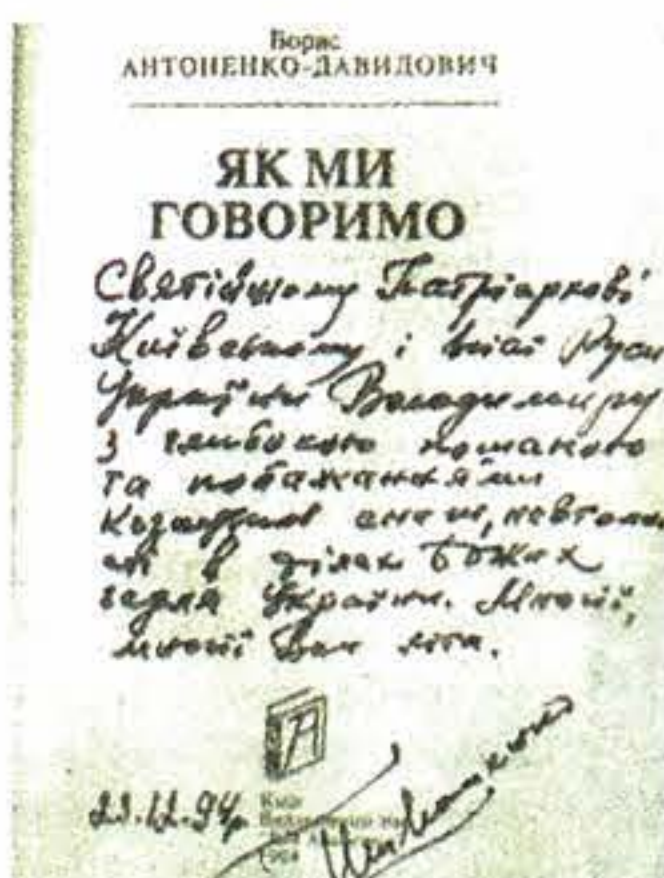 Борис
АНТОНЕНКО-ДАВИДОВИЧ
ЯК МИ
ГОВОРИМО
Святійшому Патріархові
Київському і всієї Руси
України Володимиру
з глибокою пошаною
та побажаннями
козацької сили,
в ділах Божих
задля України. Многії,
многії Вам літа.
23.12.94р.
Київ
1994